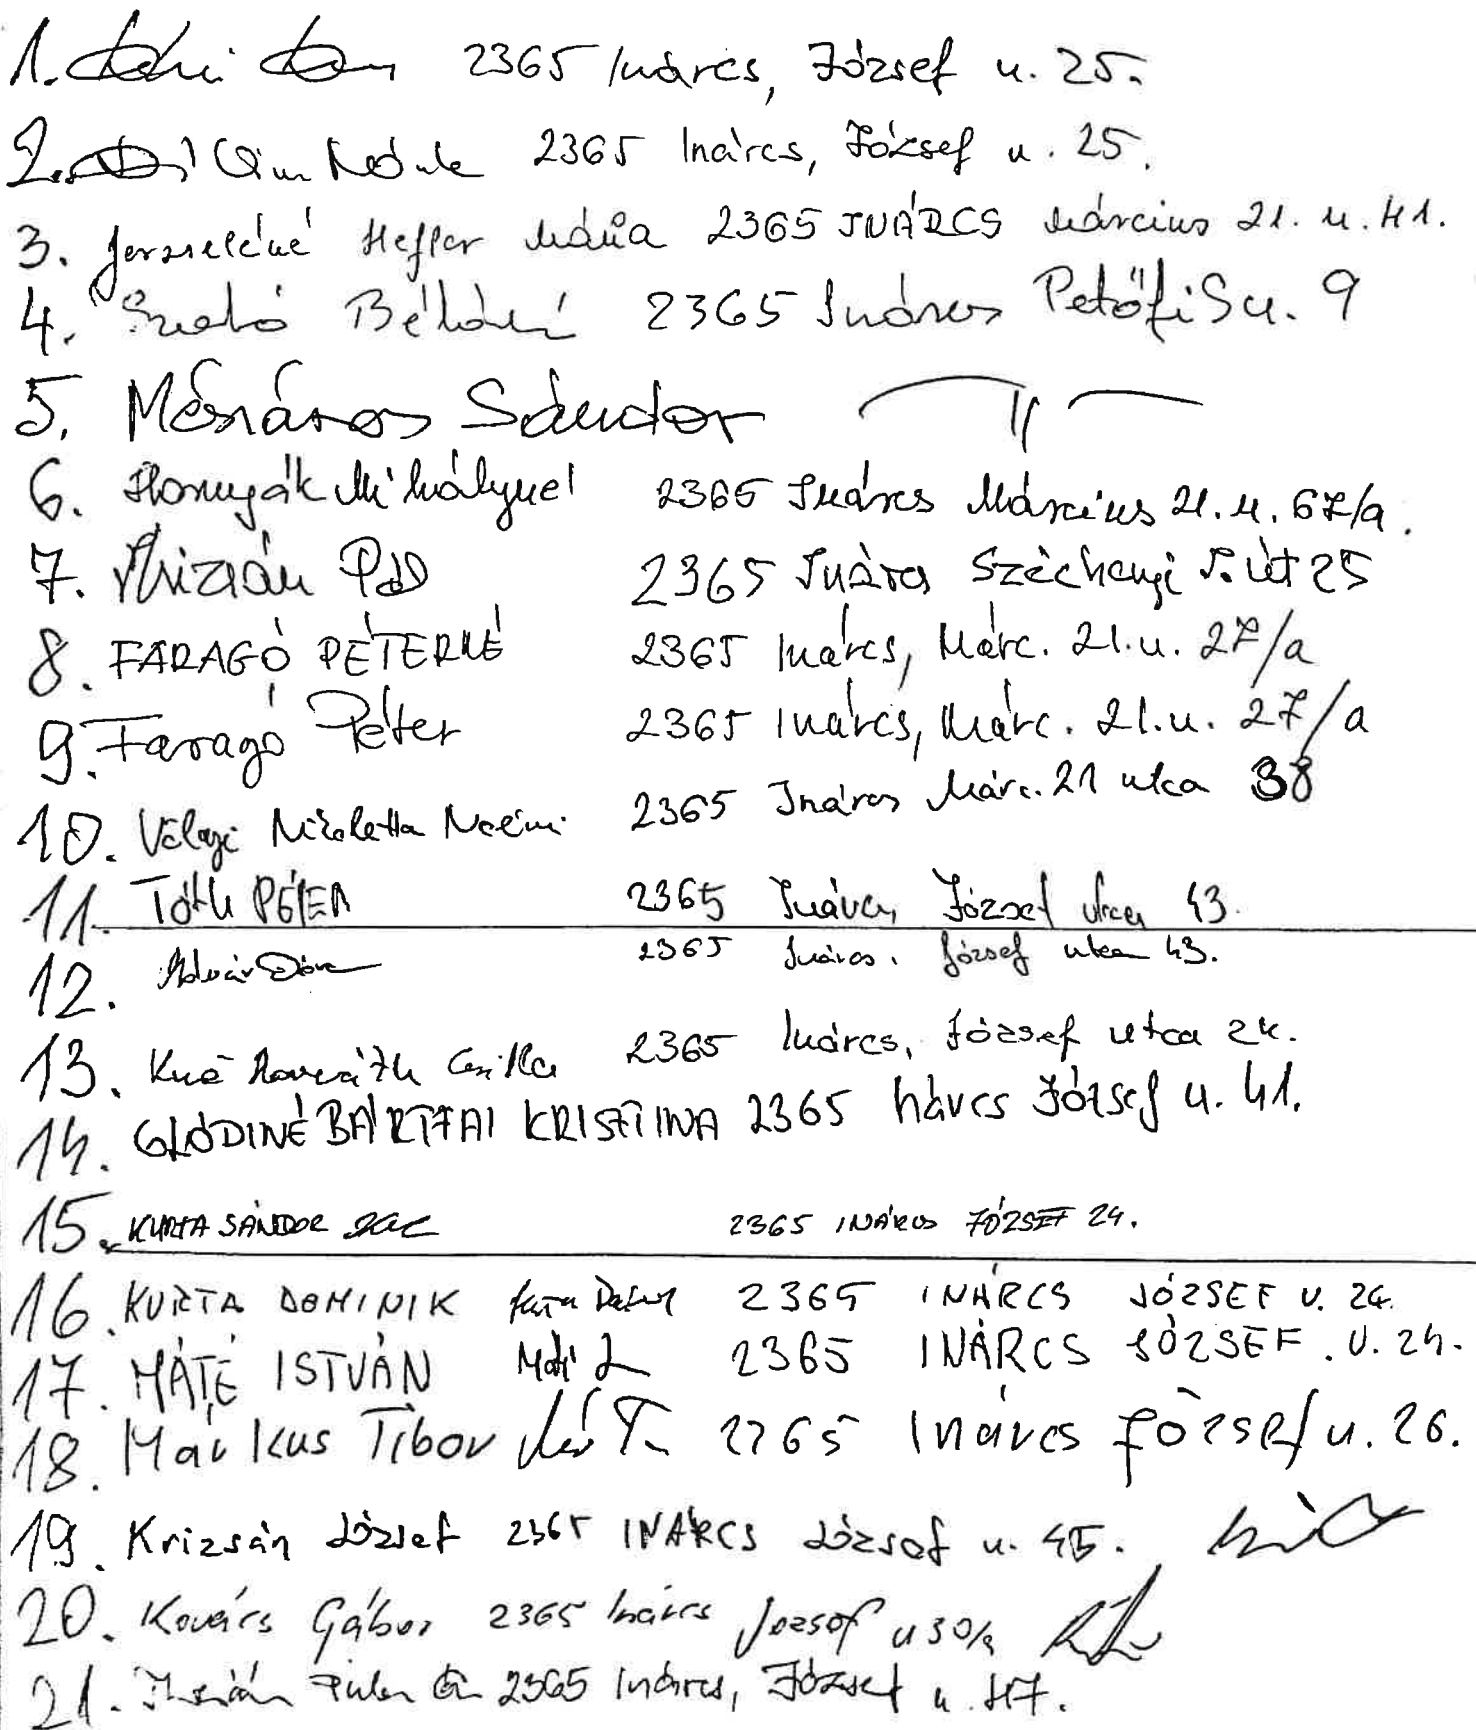 1. 2365 Inárcs, József u. 25.
2. 2365 Inárcs, József u. 25.
3. Hefler Mária 2365 INÁRCS Március 21. u. 41.
4. Szabó Béláné 2365 Inárcs Petőfi S u. 9
5. Mészáros Sándor
6. Hornyák Mihályné 2365 Inárcs Március 21. u. 67/a.
7. Krizsán Pál 2365 Inárcs Széchenyi I. út 25
8. FARAGÓ PÉTERNÉ 2365 Inárcs, Márc. 21. u. 27/a
9. Faragó Péter 2365 Inárcs, Márc. 21. u. 27/a
10. Nikoletta Noémi 2365 Inárcs Márc. 21 utca 38
11. Tóth PÉTER 2365 Inárcs, József utca 43.
12. 2365 Inárcs. József utca 43.
13. Csilla 2365 Inárcs, József utca 24.
14. GLÓDINÉ BÁRTFAI KRISZTINA 2365 Inárcs József u. 41.
15. KURTA SÁNDOR 2365 INÁRCS JÓZSEF 24.
16. KURTA DOMINIK 2365 INÁRCS JÓZSEF U. 24.
17. MÁTÉ ISTVÁN 2365 INÁRCS JÓZSEF. U. 24.
18. Markus Tibor 2365 Inárcs József u. 26.
19. Krizsán József 2365 INÁRCS József u. 45.
20. Kovács Gábor 2365 Inárcs József u 30/a
21. 2365 Inárcs, József u. 47.